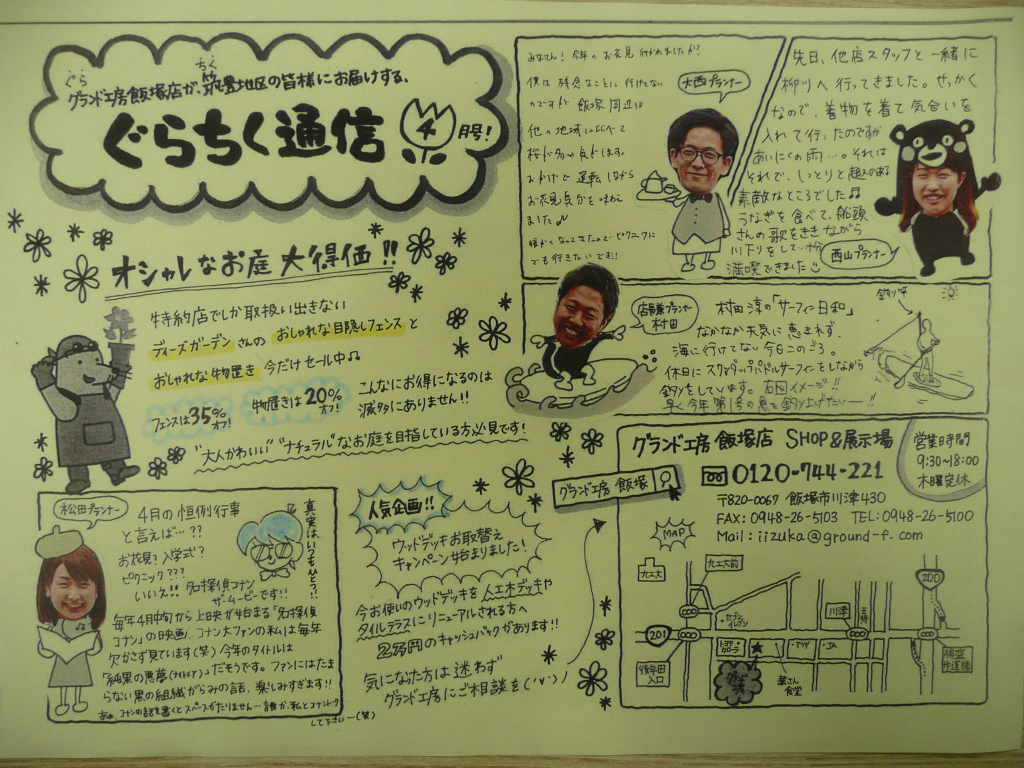 グランド工房飯塚店が、筑豊地区の皆様にお届けする、
ぐら
ちく
ぐらちく通信 4月号!
オシャレなお庭 大得価!!
特約店でしか取扱い出きない
ディーズガーデンさんの おしゃれな目隠しフェンスと
おしゃれな物置き 今だけセール中♫
フェンスは35%オフ!
物置きは20%オフ!
こんなにお得になるのは
滅多にありません!!
"大人かわいい" "ナチュラル"なお庭を目指している方必見です!
みなさん!今年のお花見行かれましたか?
僕は残念なことに行けてない
のですが 飯塚周辺は
他の地域に比べて
桜が多い気がします。
おかげで 運転しながら
お花見気分を味わえ
ました♪
暖かくなってきたので、ピクニックに
でも行きたいです!!
大西プランナー
先日、他店スタッフと一緒に
柳川へ行ってきました。せっかく
なので、着物を着て気合いを
入れて行ったのですが
あいにくの雨…。それは
それで、しっとりと趣のある
素敵なところでした♫
うなぎを食べて、船頭
さんの歌をききながら
川下りをして…
満喫できました
西山プランナー
店長兼プランナー
村田
村田淳の「サーフィン日和」
なかなか天気に恵まれず、
海に行けてない今日このごろ。
休日にスタンダップパドルサーフィンをしながら
釣りをしています。右図イメージ!!
早く今年第1号の魚を釣り上げたいー!!
釣りざお
松田プランナー
4月の恒例行事
と言えば…??
お花見?入学式?
ピクニック???
いいえ!! 名探偵コナン
ザ・ムービーです!!
毎年4月中旬から上映が始まる「名探偵
コナン」の映画、コナン大ファンの私は毎年
欠かさず見ています(笑)今年のタイトルは
「純黒の悪夢(ナイトメア)」だもうです。ファンにはたま
らない黒の組織がらみの話、楽しみすぎます!!
あぁ、コナンの話を書くとスペースがたりません…誰か、私とコナントーク
して下さいー(笑)
真実はいつもひとつ!!
人気企画!!
ウッドデッキお取替え
キャンペーン始まりました!
今お使いのウッドデッキを人工木デッキや
タイルテラスにリニューアルされる方へ
2万円のキャッシュバックがあります!!
気になった方は迷わず
グランド工房にご相談を(´∀`)ノ
グランド工房 飯塚
グランド工房 飯塚店 SHOP&展示場
0120-744-221
〒820-0067 飯塚市川津430
FAX: 0948-26-5103 TEL: 0948-26-5100
Mail: iizuka@ground-f.com
営業時間
9:30~18:00
木曜定休
MAP
九工大
九工大前
200
セブン
イレブン
川津
201
トヨタ
カローラ
・マツダ
・JA
後牟田
入口
食堂
歩道橋